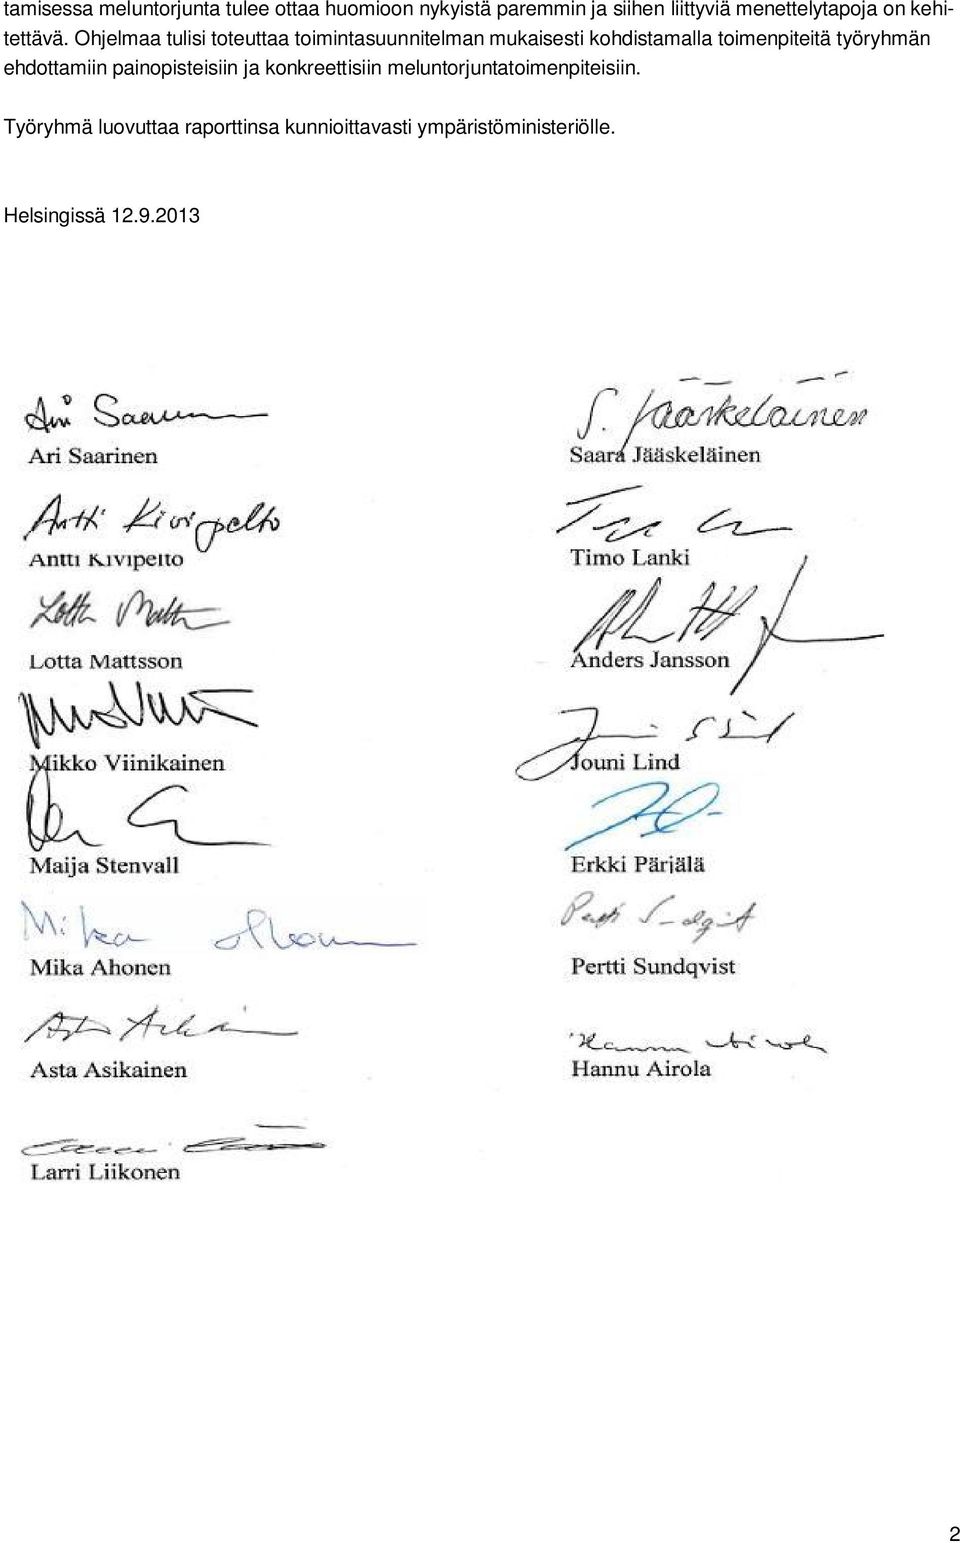 tamisessa meluntorjunta tulee ottaa huomioon nykyistä paremmin ja siihen liittyviä menettelytapoja on kehi-
tettävä. Ohjelmaa tulisi toteuttaa toimintasuunnitelman mukaisesti kohdistamalla toimenpiteitä työryhmän
ehdottamiin painopisteisiin ja konkreettisiin meluntorjuntatoimenpiteisiin.
Työryhmä luovuttaa raporttinsa kunnioittavasti ympäristöministeriölle.
Helsingissä 12.9.2013
Ari Saarinen S. Jääskeläinen
Ari Saarinen Saara Jääskeläinen
Antti Kivipelto
Antti Kivipelto Timo Lanki
Lotta Mattsson
Lotta Mattsson Anders Jansson
Mikko Viinikainen Jouni Lind
Maija Stenvall Erkki Pärjälä
Mika Ahonen
Mika Ahonen Pertti Sundqvist
Asta Asikainen Hannu Airola
Larri Liikonen
2